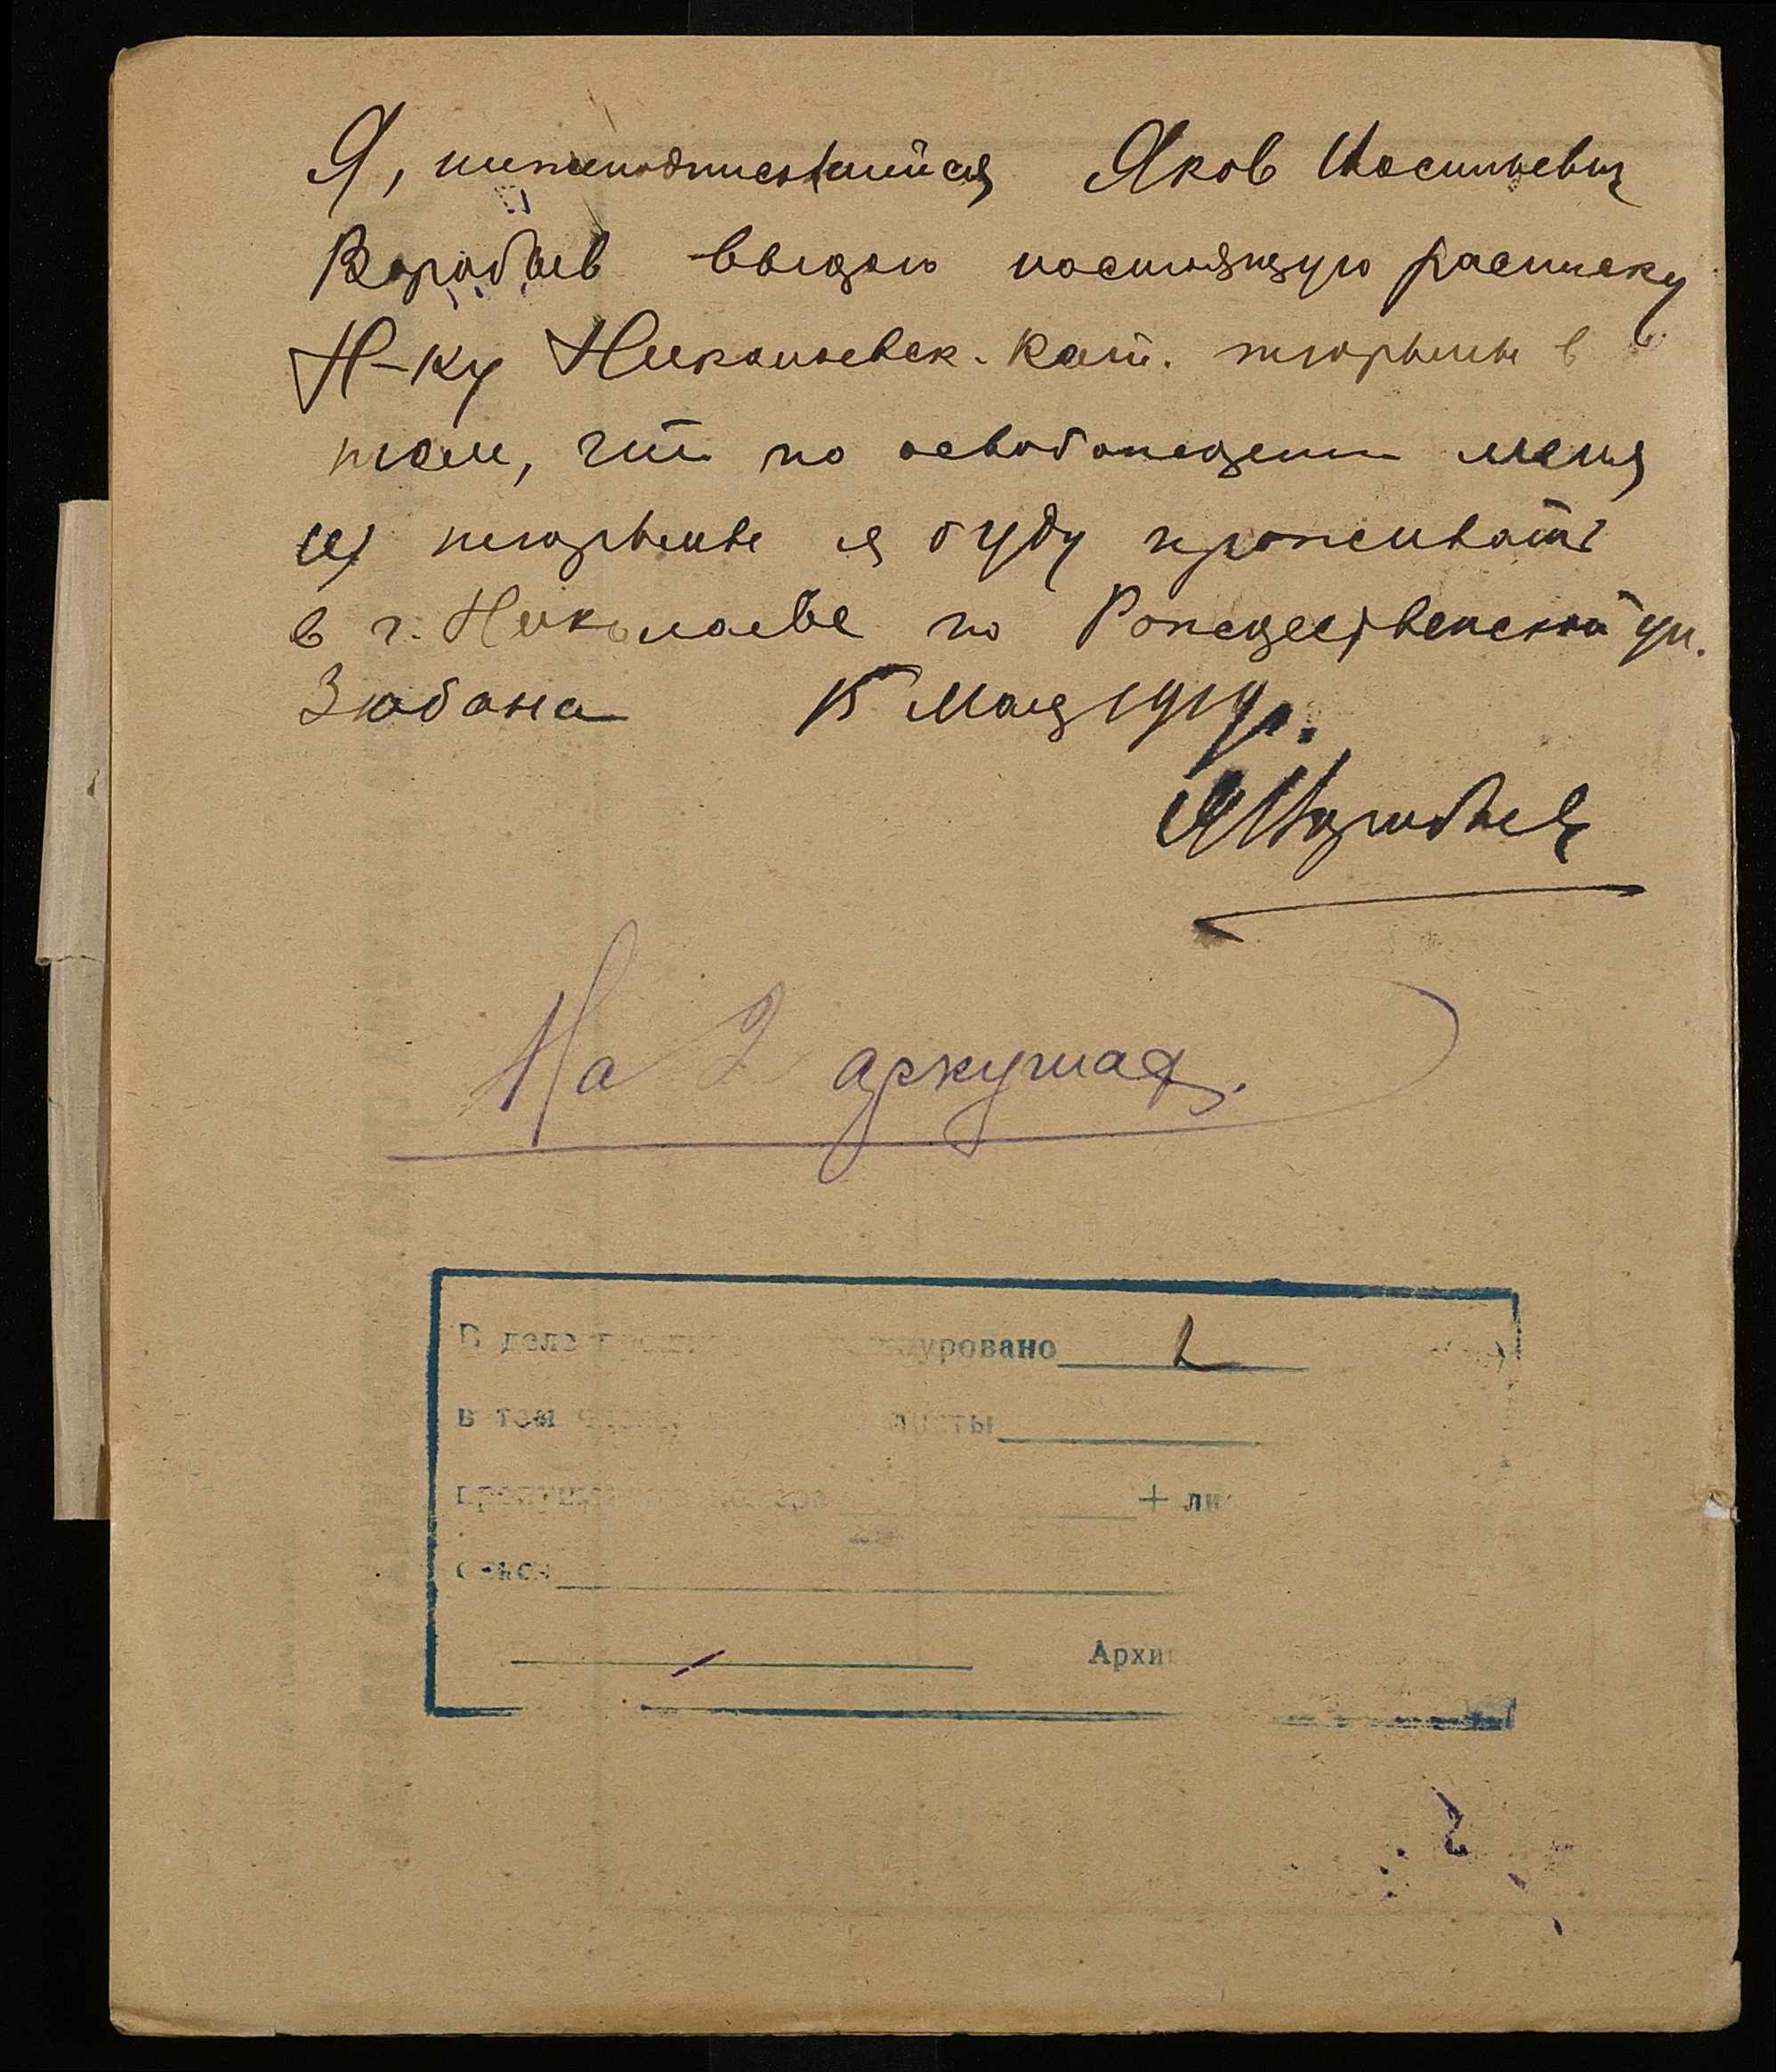 Я, нижеподписавшийся Яков Иосипович
Воробьев выдаю настоящую расписку
Н-ку Николаевск. Кат. тюрьмы в
том, что по освобождении меня
из тюрьмы я буду проживать
в г. Николаеве по Рождественской ул.
Зюбана 15 Мая 1919 г.
ЯВоробьев
На 2 аркушах.
В деле уровано 2
в том листы
+ ли
Архи